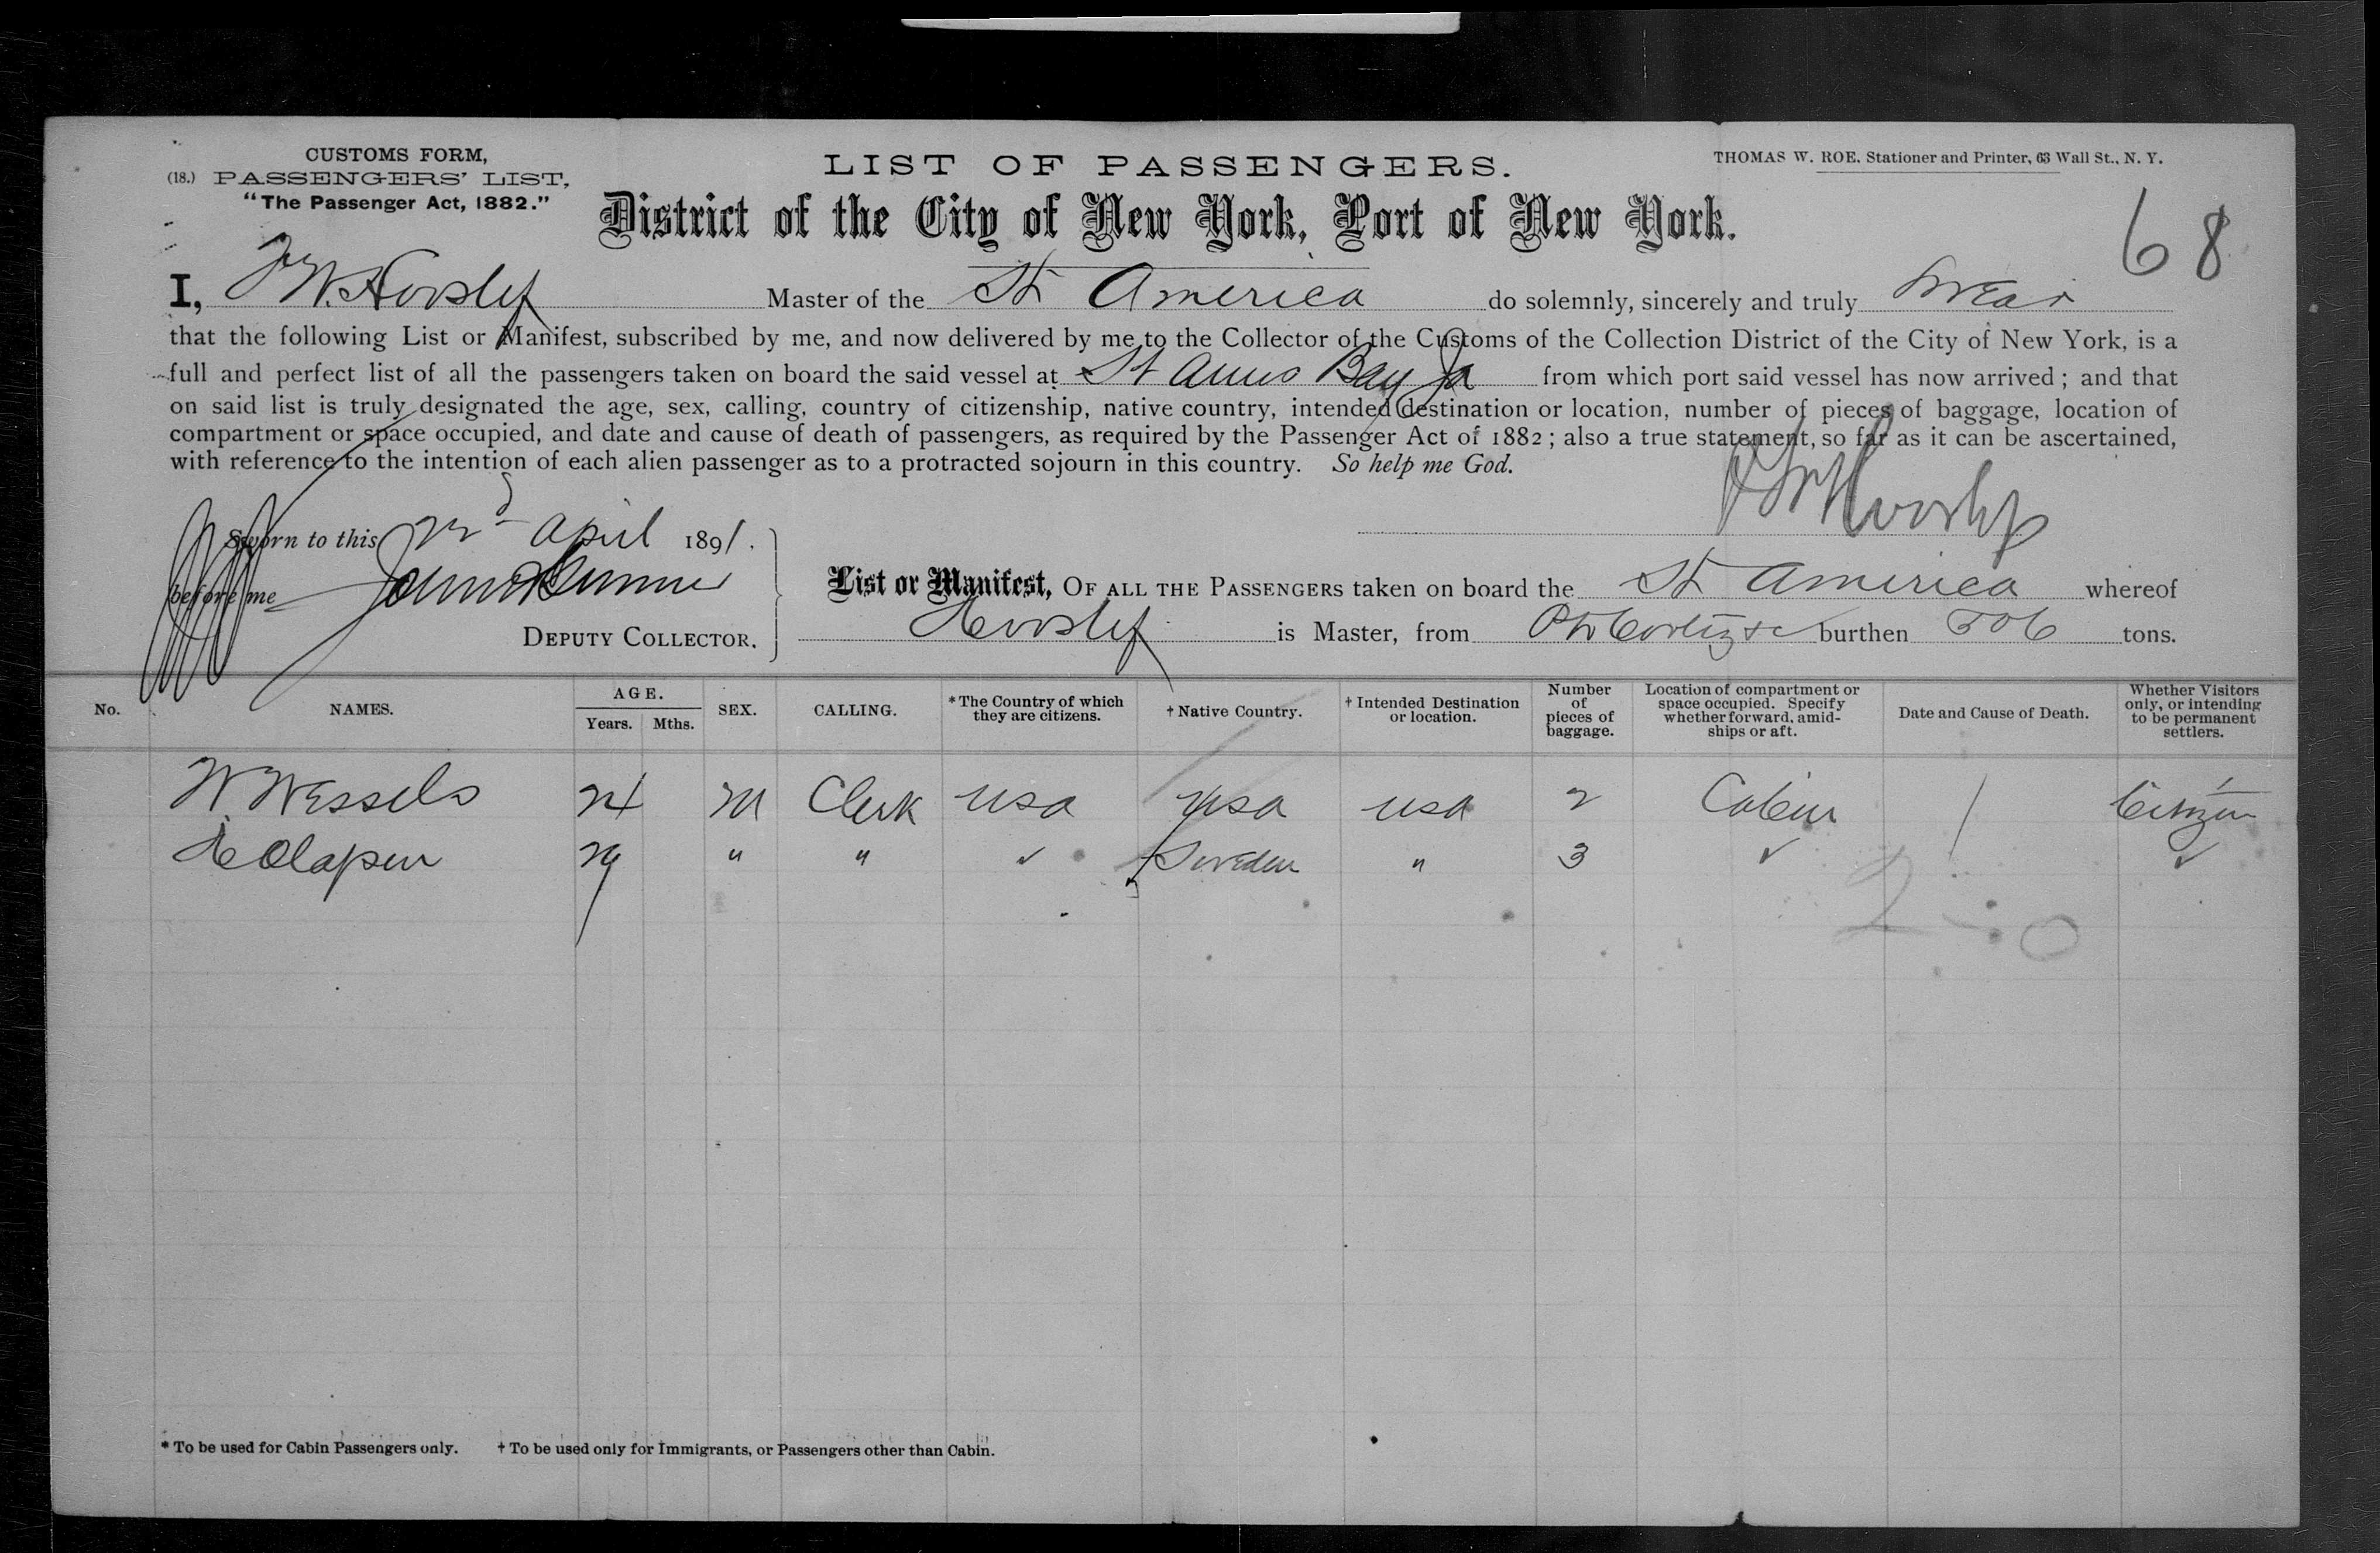 CUSTOMS FORM,
(18.) PASSENGERS' LIST,
"The Passenger Act, 1882."
LIST OF PASSENGERS.
THOMAS W. ROE, Stationer and Printer, 63 Wall St., N. Y.
District of the City of New York, Port of New York.
68
I, Master of the St America do solemnly, sincerely and truly swear
that the following List or Manifest, subscribed by me, and now delivered by me to the Collector of the Customs of the Collection District of the City of New York, is a
full and perfect list of all the passengers taken on board the said vessel at St Anns Bay Ja from which port said vessel has now arrived; and that
on said list is truly designated the age, sex, calling, country of citizenship, native country, intended destination or location, number of pieces of baggage, location of
compartment or space occupied, and date and cause of death of passengers, as required by the Passenger Act of 1882; also a true statement, so far as it can be ascertained,
with reference to the intention of each alien passenger as to a protracted sojourn in this country. So help me God.
Sworn to this April 1891.
before me
DEPUTY COLLECTOR.
List or Manifest, OF ALL THE PASSENGERS taken on board the St America whereof
is Master, from burthen tons.
No. NAMES. AGE. Years. Mths. SEX. CALLING. *The Country of which they are citizens. †Native Country. †Intended Destination or location. Number of pieces of baggage. Location of compartment or space occupied. Specify whether forward, amidships or aft. Date and Cause of Death. Whether Visitors only, or intending to be permanent settlers.
W. Wessels 24 M Clerk USA USA USA 2 Cabin / Citizen
29 " " ✓ Sweden " 3 ✓ ✓
2 - 0
* To be used for Cabin Passengers only. † To be used only for Immigrants, or Passengers other than Cabin.